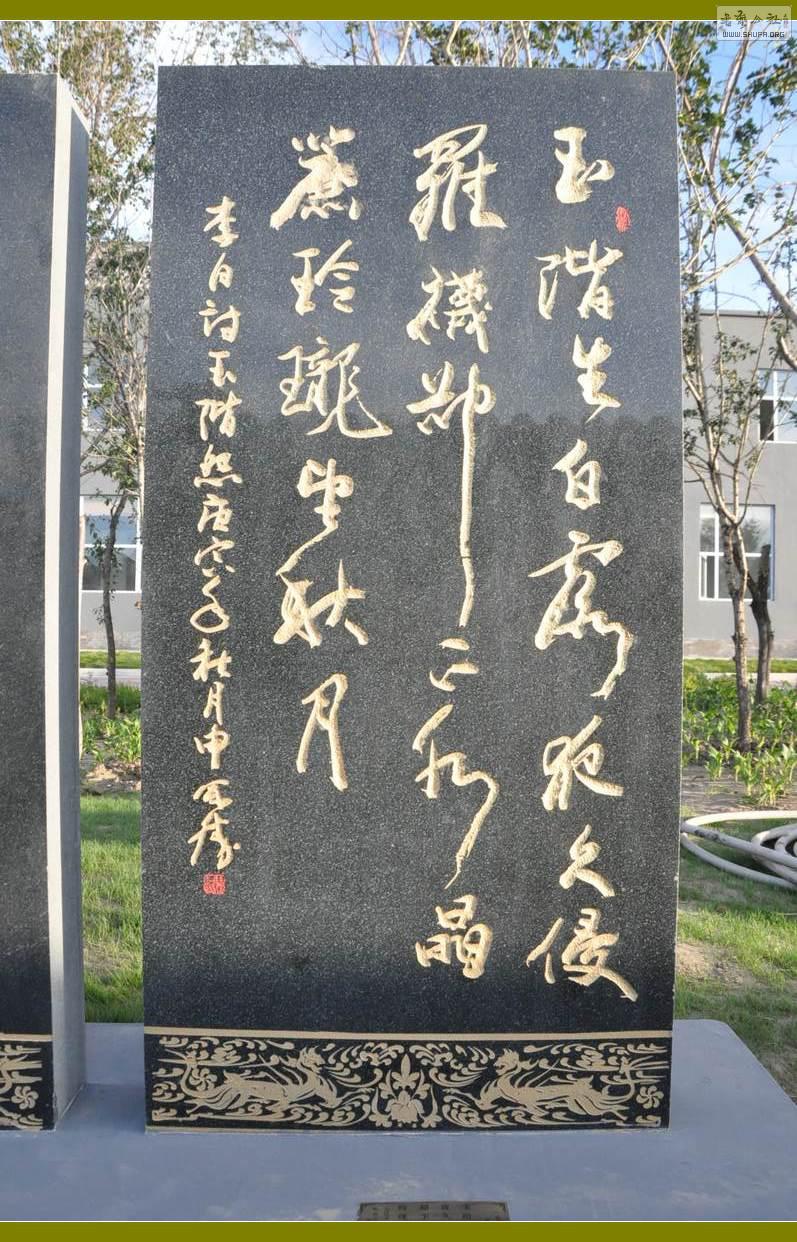 玉階生白露夜久侵
羅襪卻下水晶
簾玲瓏望秋月
李白詩玉階怨庚寅年秋月申万勝
WWW.SHUFA.ORG